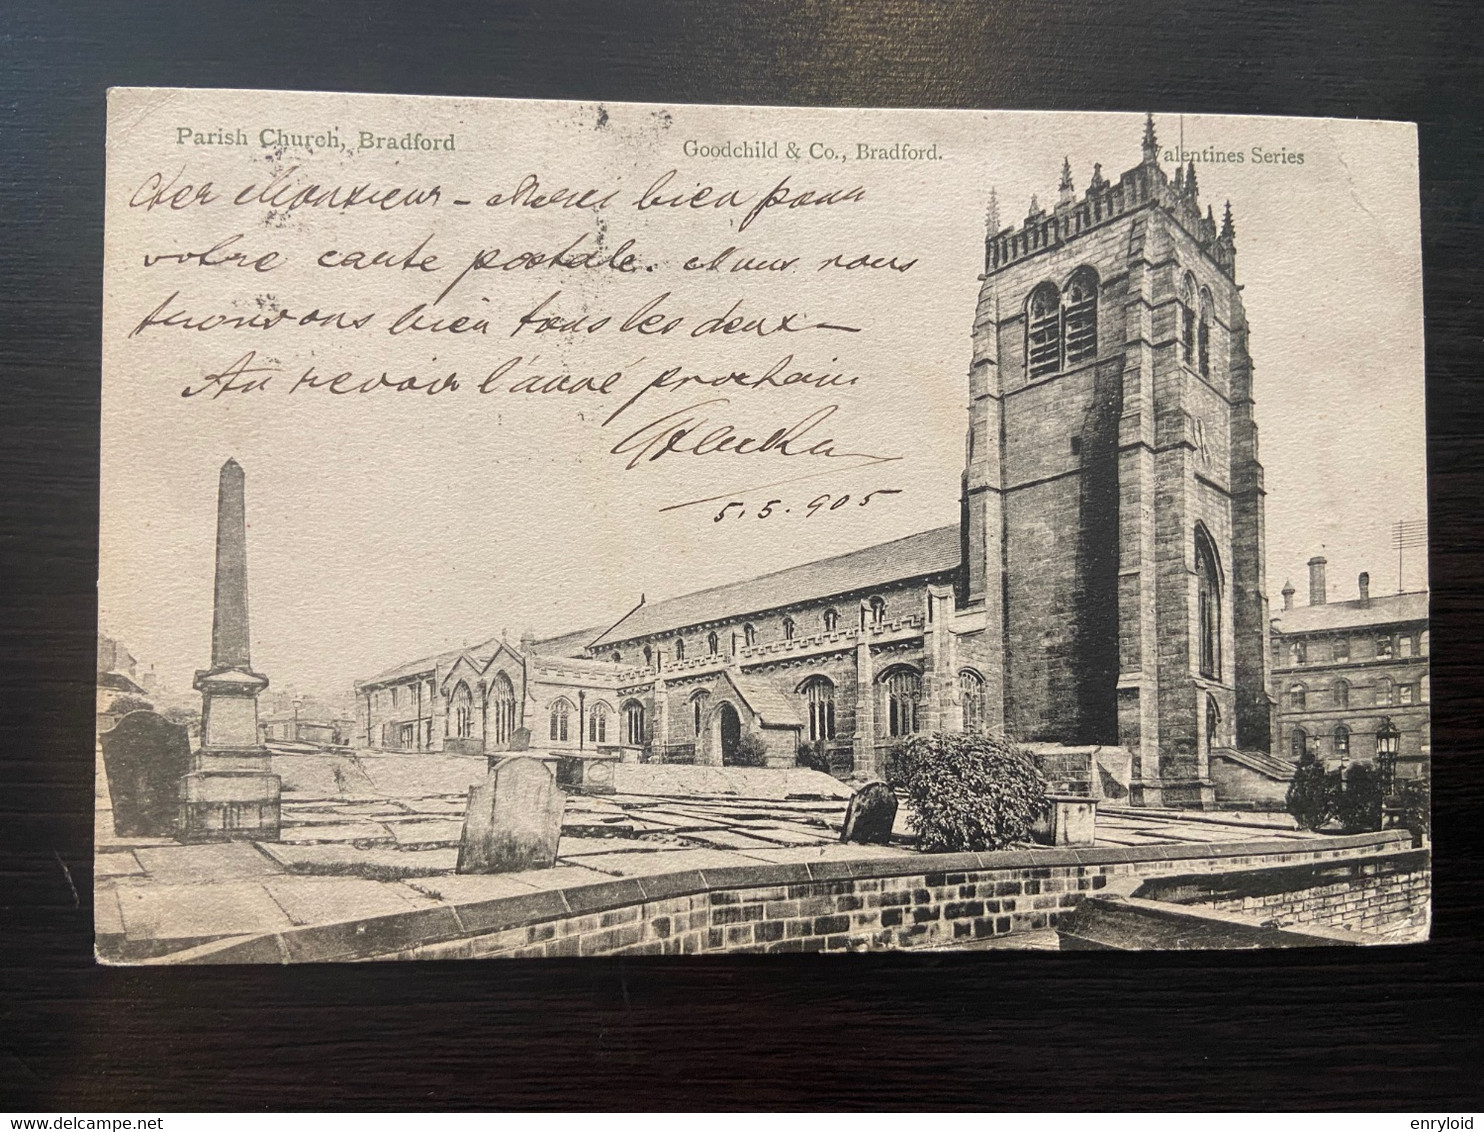 Parish Church, Bradford
Goodchild & Co., Bradford.
Valentines Series
Cher Monsieur - Merci bien pour
votre carte postale. Nous nous
trouvons bien tous les deux -
Au revoir l'anné prochain
5.5.905
delcampe.net
enryloid